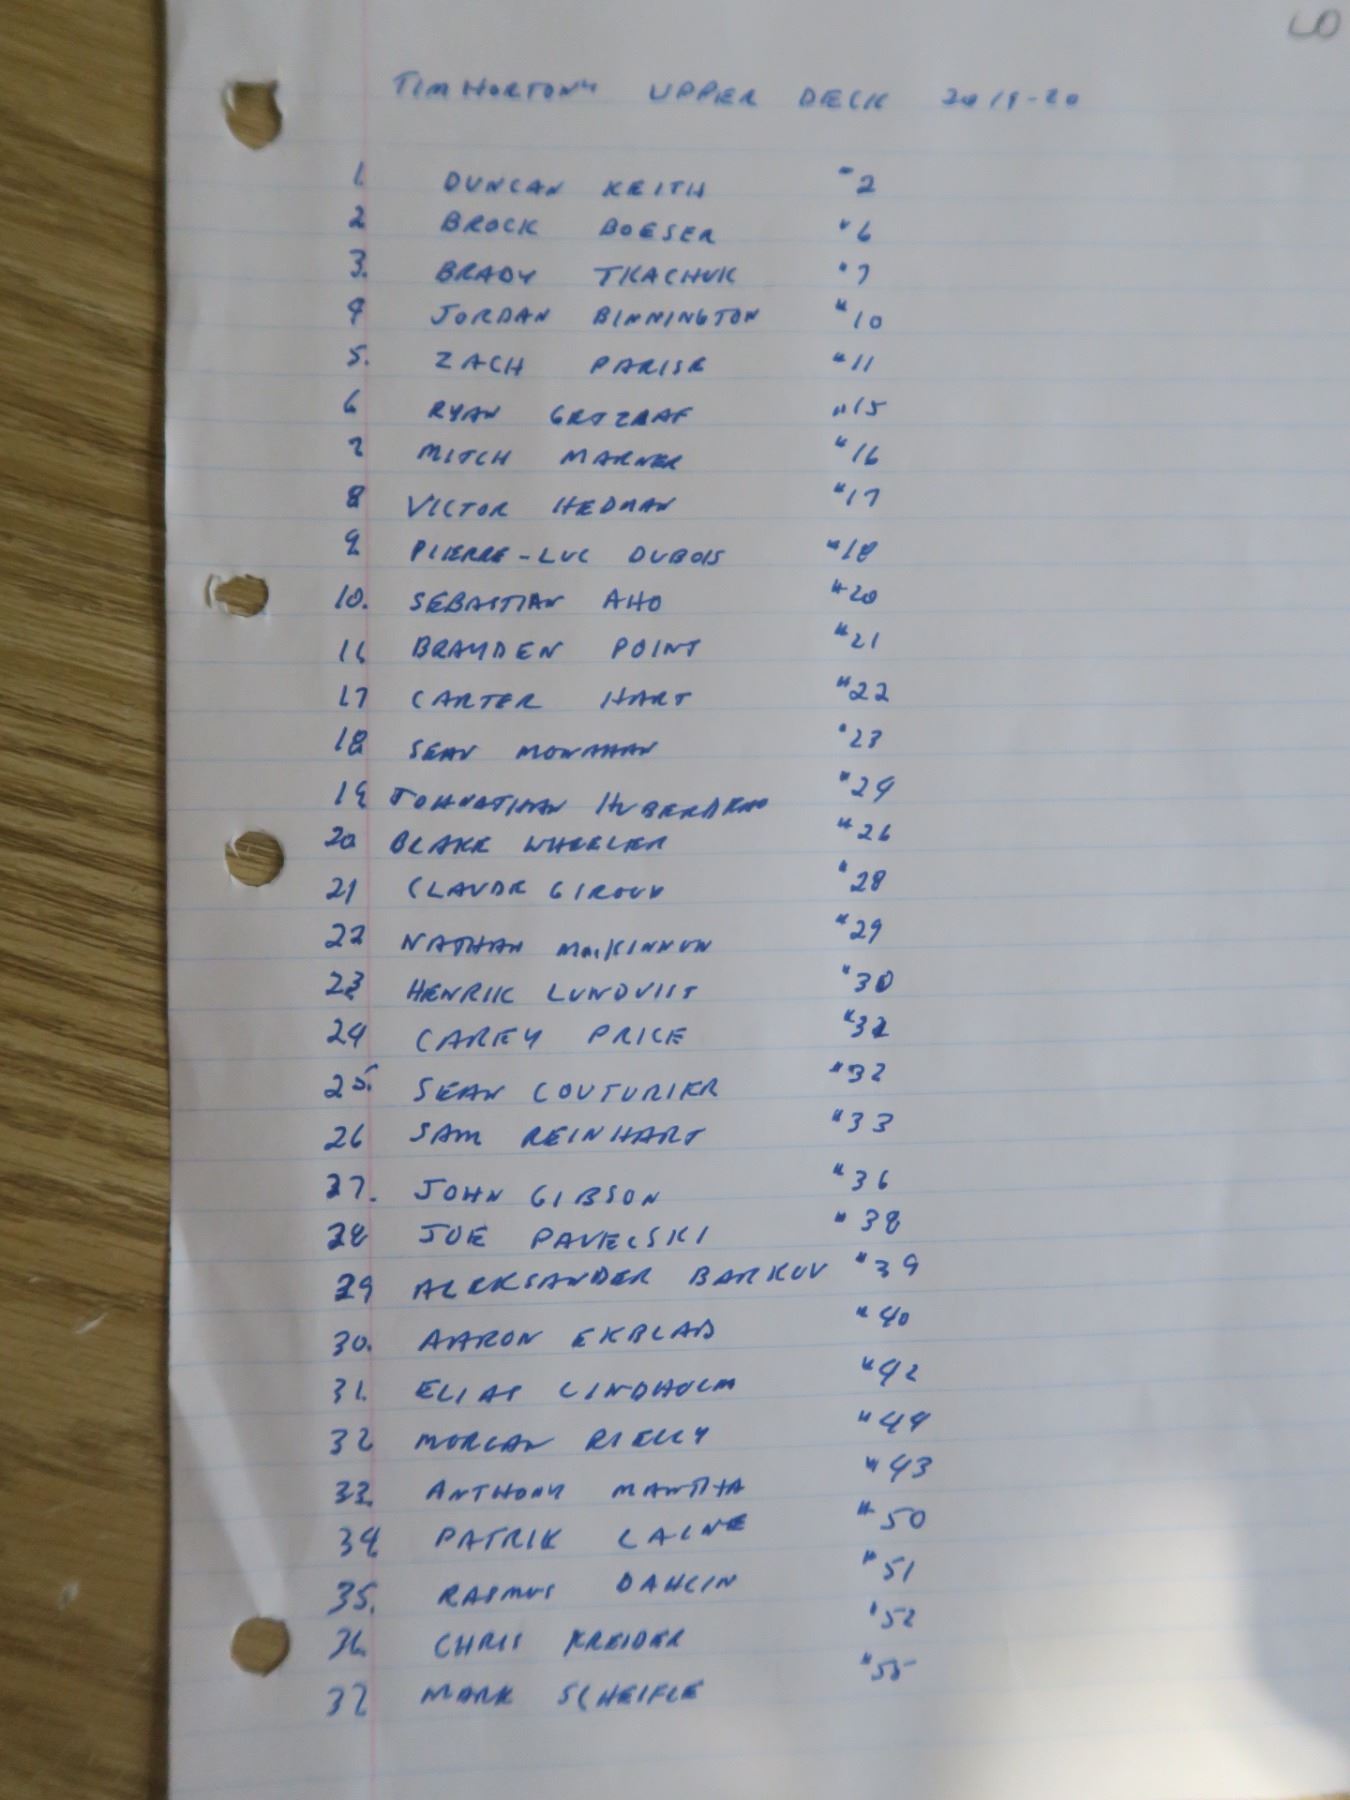 5
TIM HORTONS UPPER DECK 2019-20
1. DUNCAN KEITH #2
2 BROCK BOESER #6
3. BRADY TKACHUK #7
4 JORDAN BINNINGTON #10
5. ZACH PARISE #11
6 RYAN GETZLAF #15
7 MITCH MARNER #16
8 VICTOR HEDMAN #17
9 PIERRE-LUC DUBOIS #18
10. SEBASTIAN AHO #20
16 BRAYDEN POINT #21
17 CARTER HART #22
18 SEAN MONAHAN #23
19 JOHNATHAN HUBERDEAU #24
20 BLAKE WHEELER #26
21 CLAUDE GIROUX #28
22 NATHAN MacKINNON #29
23 HENRIK LUNDVIST #30
24 CAREY PRICE #31
25. SEAN COUTURIER #32
26 SAM REINHART #33
27. JOHN GIBSON #36
28 JOE PAVELSKI #38
29 ALEKSANDER BARKOV #39
30. AARON EKBLAD #40
31. ELIAS LINDHOLM #42
32 MORGAN RIELLY #44
33. ANTHONY MANTHA #43
34 PATRIK LAINE #50
35. RASMUS DAHLIN #51
36. CHRIS KREIDER #52
37 MARK SCHEIFLE #55